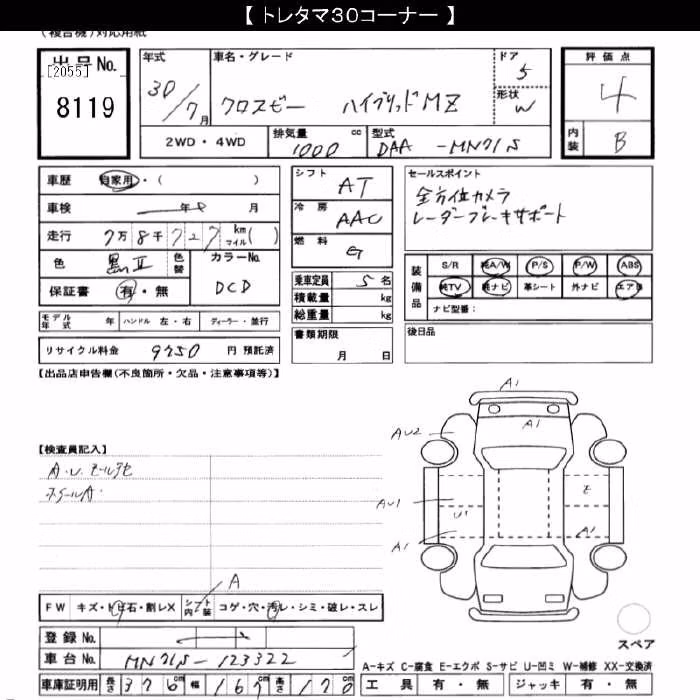 【 トレタマ30コーナー 】
(複合機)対応用紙
出品No.
[2055]
8119
年式
30/7月
車名・グレード
クロスビー ハイブリッドMZ
ドア
5
形状
W
評価点
4
内装
B
2WD・4WD
排気量
1000 cc
型式
DAA -MN71S
車歴 自家用・( )
車検 年 月
走行 7万8千727 km マイル( )
色 黒Ⅱ 色替
カラーNo.
DCD
保証書 有・無
モデル年式 年 ハンドル 左・右 ディーラー・並行
リサイクル料金 9750 円 預託済
シフト
AT
冷房
AAC
燃料
G
乗車定員 5 名
積載量 kg
総重量 kg
書類期限
月 日
セールスポイント
全方位カメラ
レーダーブレーキサポート
装備品
S/R 純A/W P/S P/W ABS
純TV 純ナビ 革シート 外ナビ エアB
ナビ型番:
後日品
【出品店申告欄(不良箇所・欠品・注意事項等)】
【検査員記入】
A.U.モールキセ
ホイールA.
A1
A1
AU2
AU1
U1
E
A1
A1
A
FW キズ・トビ石・割レX シフト内装 コゲ・穴・汚レ・シミ・破レ・スレ
登録No.
車台No. MN71S-123322
車庫証明用 長さ 376cm 幅 167cm 高さ 170
スペア
A-キズ C-腐食 E-エクボ S-サビ U-凹ミ W-補修 XX-交換済
工具 有・無 ジャッキ 有・無